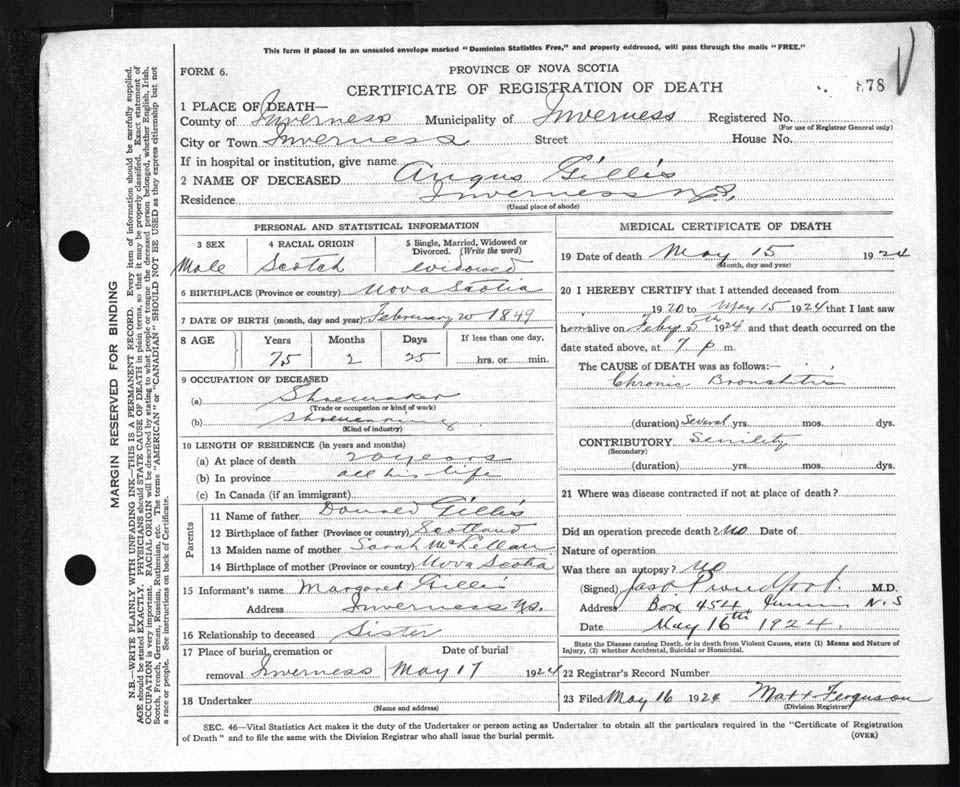 This form if placed in an unsealed envelope marked "Dominion Statistics Free," and properly addressed, will pass through the mails "FREE."
FORM 6.
PROVINCE OF NOVA SCOTIA
CERTIFICATE OF REGISTRATION OF DEATH
878
1 PLACE OF DEATH—
County of Inverness Municipality of Inverness Registered No.
(For use of Registrar General only)
City or Town Inverness Street House No.
If in hospital or institution, give name
2 NAME OF DECEASED Angus Gillis
Residence Inverness N.S.
(Usual place of abode)
PERSONAL AND STATISTICAL INFORMATION
3 SEX 4 RACIAL ORIGIN 5 Single, Married, Widowed or Divorced. (Write the word)
Male Scotch Widowed
6 BIRTHPLACE (Province or country) Nova Scotia
7 DATE OF BIRTH (month, day and year) February 20 1849
8 AGE Years Months Days If less than one day,
75 2 25 hrs. or min.
9 OCCUPATION OF DECEASED
(a) Shoemaker
(Trade or occupation or kind of work)
(b)
(Kind of industry)
10 LENGTH OF RESIDENCE (in years and months)
(a) At place of death 20 years
(b) In province all his life
(c) In Canada (if an immigrant)
Parents
11 Name of father Donald Gillis
12 Birthplace of father (Province or country) Scotland
13 Maiden name of mother Sarah McLellan
14 Birthplace of mother (Province or country) Nova Scotia
15 Informant's name Margaret Gillis
Address Inverness NS.
16 Relationship to deceased Sister
17 Place of burial, cremation or removal Inverness Date of burial May 17 1924
18 Undertaker
(Name and address)
MEDICAL CERTIFICATE OF DEATH
19 Date of death May 15 1924
(Month, day and year)
20 I HEREBY CERTIFY that I attended deceased from
1920 to May 15 1924 that I last saw
him alive on Feby 5th 1924 and that death occurred on the
date stated above, at 7 p m.
The CAUSE of DEATH was as follows:—
Chronic Bronchitis
(duration) Several yrs. mos. dys.
CONTRIBUTORY Senility
(Secondary)
(duration) yrs. mos. dys.
21 Where was disease contracted if not at place of death?
Did an operation precede death? No Date of
Nature of operation
Was there an autopsy? No
(Signed) Jas Proudfoot M.D.
Address Box 454, N.S
Date May 16th 1924.
State the Disease causing Death, or in death from Violent Causes, state (1) Means and Nature of Injury, (2) whether Accidental, Suicidal or Homicidal.
22 Registrar's Record Number
23 Filed May 16 1924 Matt Ferguson
(Division Registrar)
SEC. 46—Vital Statistics Act makes it the duty of the Undertaker or person acting as Undertaker to obtain all the particulars required in the "Certificate of Registration
of Death" and to file the same with the Division Registrar who shall issue the burial permit.
(OVER)
MARGIN RESERVED FOR BINDING
N.B.—WRITE PLAINLY WITH UNFADING INK—THIS IS A PERMANENT RECORD. Every item of information should be carefully supplied.
AGE should be stated EXACTLY. PHYSICIANS should STATE CAUSE OF DEATH in plain terms, so that it may be properly classified. Exact statement of
OCCUPATION is very important. RACIAL ORIGIN will be described by stating to what people or tongue the deceased person belonged, whether English, Irish,
Scotch, French, German, Russian, Ruthenian, etc. The terms "AMERICAN" or "CANADIAN" SHOULD NOT BE USED as they express citizenship but not
a race or people. See instructions on back of Certificate.